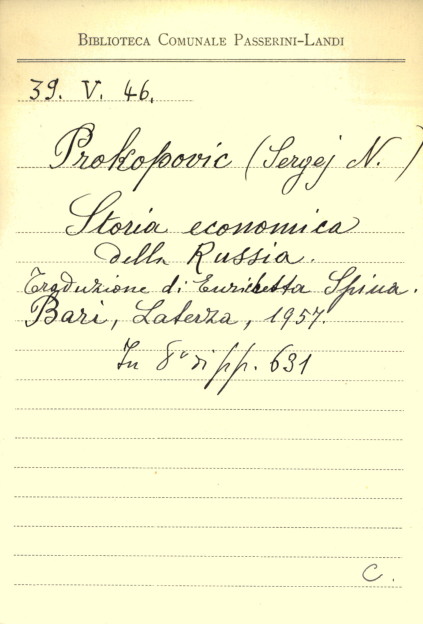 BIBLIOTECA COMUNALE PASSERINI-LANDI
39. V. 46.
Prokopovic (Sergej N.)
Storia economica
della Russia.
Traduzione di Enrichetta Spina.
Bari, Laterza, 1957.
In 8° di pp. 631
C.